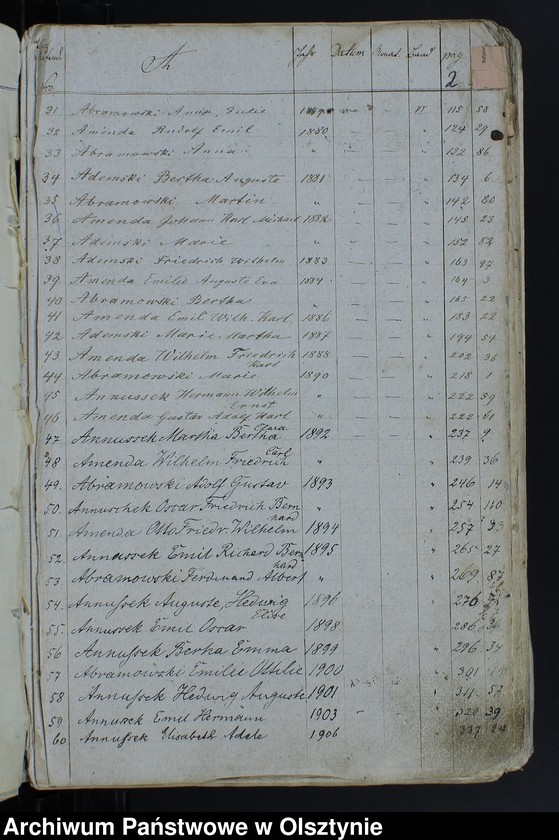 A. Jahr Datum Monat Band pag
2
31 Abramowski Anna, Julie VI 115 53
32 Amenda Rudolf Emil 1880 " 124 29
33 Abramowski Anna " — — " 132 86
34 Ademski Bertha Auguste 1881 — — " 134 6
35 Abramowski Martin " — — " 142 80
36 Amenda Johann Karl Michael 1882 — — " 145 23
37 Ademski Marie " " — — " 152 82
38 Ademski Friedrich Wilhelm 1883 — — " 163 97
39 Amenda Emilie Auguste Eva 1884 — — " 164 3
40 Abramowski Bertha " — — " 165 22
41 Amenda Emil Wilh. Karl 1886 — — " 183 22
42 Ademski Marie Martha 1887 — — " 194 54
43 Amenda Wilhelm Friedrich 1888 — — " 202 36
Karl
44 Abramowski Marie 1890 — — " 218 1
45 Annussek Hermann Wilhelm " — — " 222 59
Ernst
46 Amenda Gustav Adolf Karl " — — " 222 61
Clara
47 Annussek Martha Bertha 1892 — — " 237 9
Carl
48 Amenda Wilhelm Friedrich " " 239 36
49. Abramowski Adolf Gustav 1893 " 246 14
50. Annuschek Oscar Friedrich Bern " " 254 110
hard
51. Amenda Otto Friedr. Wilhelm 1894 " 257
52. Annussek Emil Richard Bern 1895 " 265 27
hard
53. Abramowski Ferdinand Albert " " 269 87
54. Annußek Auguste, Hedwig 1896 276
Elise
55. Annussek Emil Oscar 1898 " 286
56 Annußek Bertha Emma 1899 " 296 34
57 Abramowski Emilie Ottilie 1900 " 301
58 Annußek Hedwig Auguste 1901 " 311 57
59 Annussek Emil Hermann 1903 — " 320 39
60 Annußek Elisabeth Adele 1906 " 337 24
Archiwum Państwowe w Olsztynie